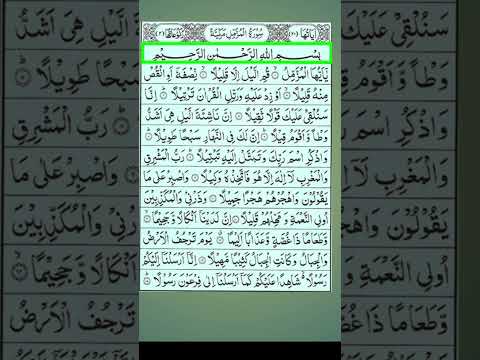 اٰيَاتُهَا (٢٠) سُوْرَةُ الْمُزَّمِّلِ مَكِّيَّةٌ رُكُوْعَاتُهَا (٢)
بِسْمِ اللهِ الرَّحْمٰنِ الرَّحِيْمِ
يٰٓاَيُّهَا الْمُزَّمِّلُ ۝ قُمِ الَّيْلَ اِلَّا قَلِيْلًا ۝ نِّصْفَهٗٓ اَوِ انْقُصْ
مِنْهُ قَلِيْلًا ۝ اَوْ زِدْ عَلَيْهِ وَرَتِّلِ الْقُرْاٰنَ تَرْتِيْلًا ۝ اِنَّا
سَنُلْقِيْ عَلَيْكَ قَوْلًا ثَقِيْلًا ۝ اِنَّ نَاشِئَةَ الَّيْلِ هِيَ اَشَدُّ
وَطْاً وَّاَقْوَمُ قِيْلًا ۝ اِنَّ لَكَ فِي النَّهَارِ سَبْحًا طَوِيْلًا ۝
وَاذْكُرِ اسْمَ رَبِّكَ وَتَبَتَّلْ اِلَيْهِ تَبْتِيْلًا ۝ رَبُّ الْمَشْرِقِ
وَالْمَغْرِبِ لَآ اِلٰهَ اِلَّا هُوَ فَاتَّخِذْهُ وَكِيْلًا ۝ وَاصْبِرْ عَلٰى مَا
يَقُوْلُوْنَ وَاهْجُرْهُمْ هَجْرًا جَمِيْلًا ۝ وَذَرْنِيْ وَالْمُكَذِّبِيْنَ
اُولِي النَّعْمَةِ وَمَهِّلْهُمْ قَلِيْلًا ۝ اِنَّ لَدَيْنَآ اَنْكَالًا وَّجَحِيْمًا ۝
وَّطَعَامًا ذَا غُصَّةٍ وَّعَذَابًا اَلِيْمًا ۝ يَوْمَ تَرْجُفُ الْاَرْضُ
وَالْجِبَالُ وَكَانَتِ الْجِبَالُ كَثِيْبًا مَّهِيْلًا ۝ اِنَّآ اَرْسَلْنَآ اِلَيْكُمْ
رَسُوْلًا شَاهِدًا عَلَيْكُمْ كَمَآ اَرْسَلْنَآ اِلٰى فِرْعَوْنَ رَسُوْلًا ۝